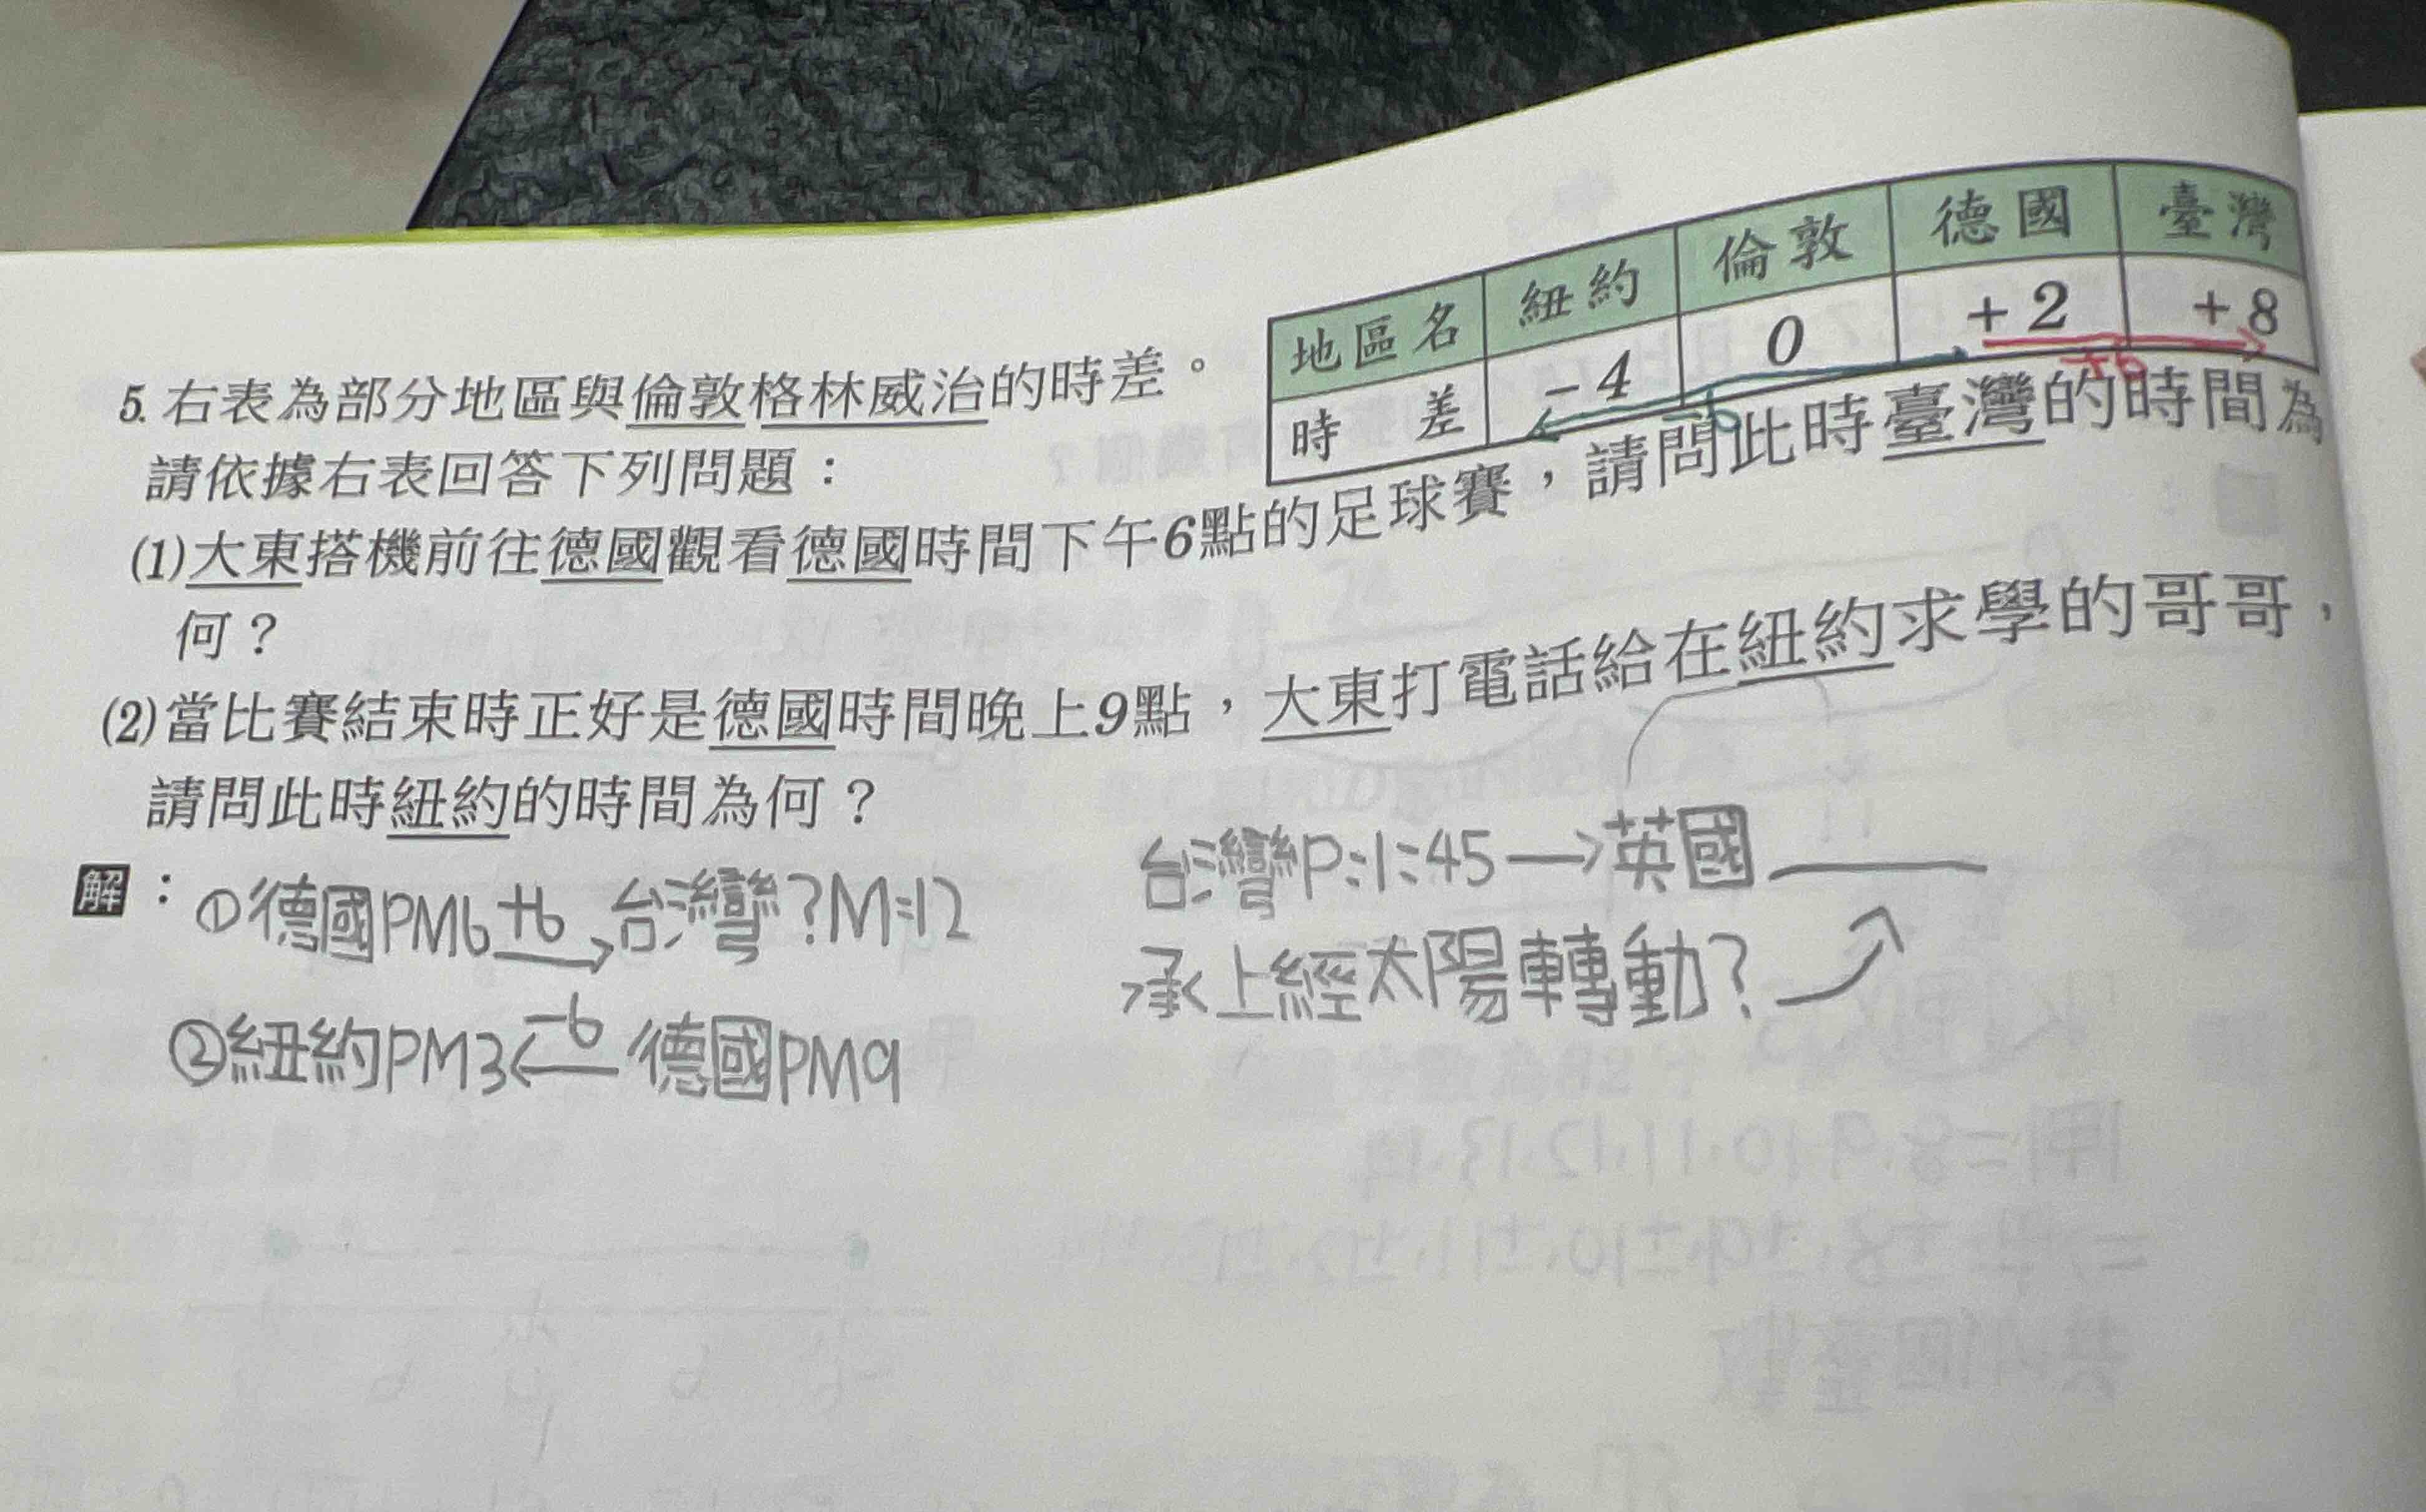 地區名 紐約 倫敦 德國 臺灣
時差 -4 0 +2 +8
-6 +6
5. 右表為部分地區與倫敦格林威治的時差。
請依據右表回答下列問題：
(1)大東搭機前往德國觀看德國時間下午6點的足球賽，請問此時臺灣的時間為
何？
(2)當比賽結束時正好是德國時間晚上9點，大東打電話給在紐約求學的哥哥，
請問此時紐約的時間為何？
解：①德國PM6 +6→台灣?M:12
②紐約PM3 ←-6 德國PM9
台灣P:1:45→英國
承上經太陽轉動?